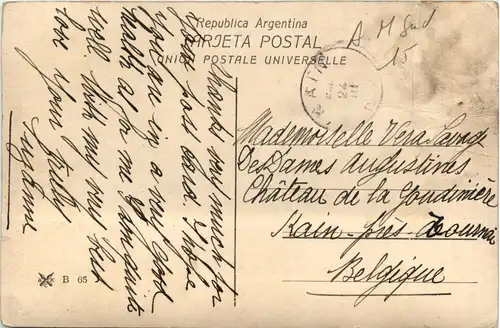 Republica Argentina
TARJETA POSTAL
UNION POSTALE UNIVERSELLE
A. M Sud
15
KAIN
24
III
Thanks very much for
your post card I hope
you are in a very good
health as for me I am quite
well. With my very best
love yours
Mademoiselle Vera
Des Dames Augustines
Château de la Goudinière
Kain-près-Tournai
Belgique
B 65